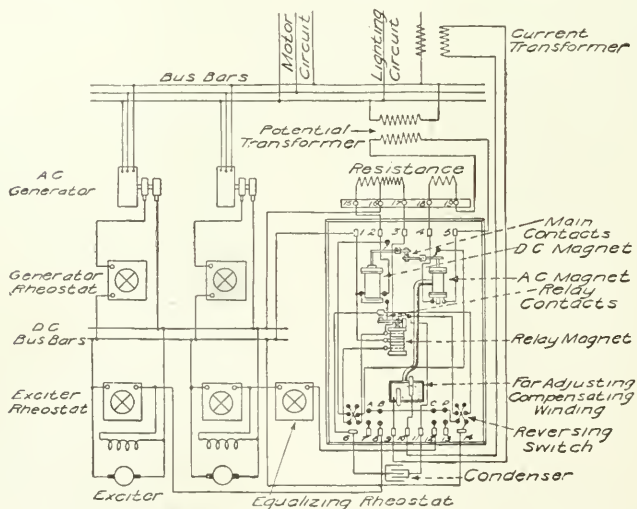 Motor Circuit
Lighting Circuit
Current Transformer
Bus Bars
Potential Transformer
AC Generator
Resistance
15 16 17 18 19
1 2 3 4 5
Main Contacts
DC Magnet
AC Magnet
Relay Contacts
Generator Rheostat
DC Bus Bars
Relay Magnet
Exciter Rheostat
For Adjusting Compensating Winding
A B C D
Reversing Switch
6 7 8 9 10 11 12 13 14
Condenser
Exciter
Equalizing Rheostat